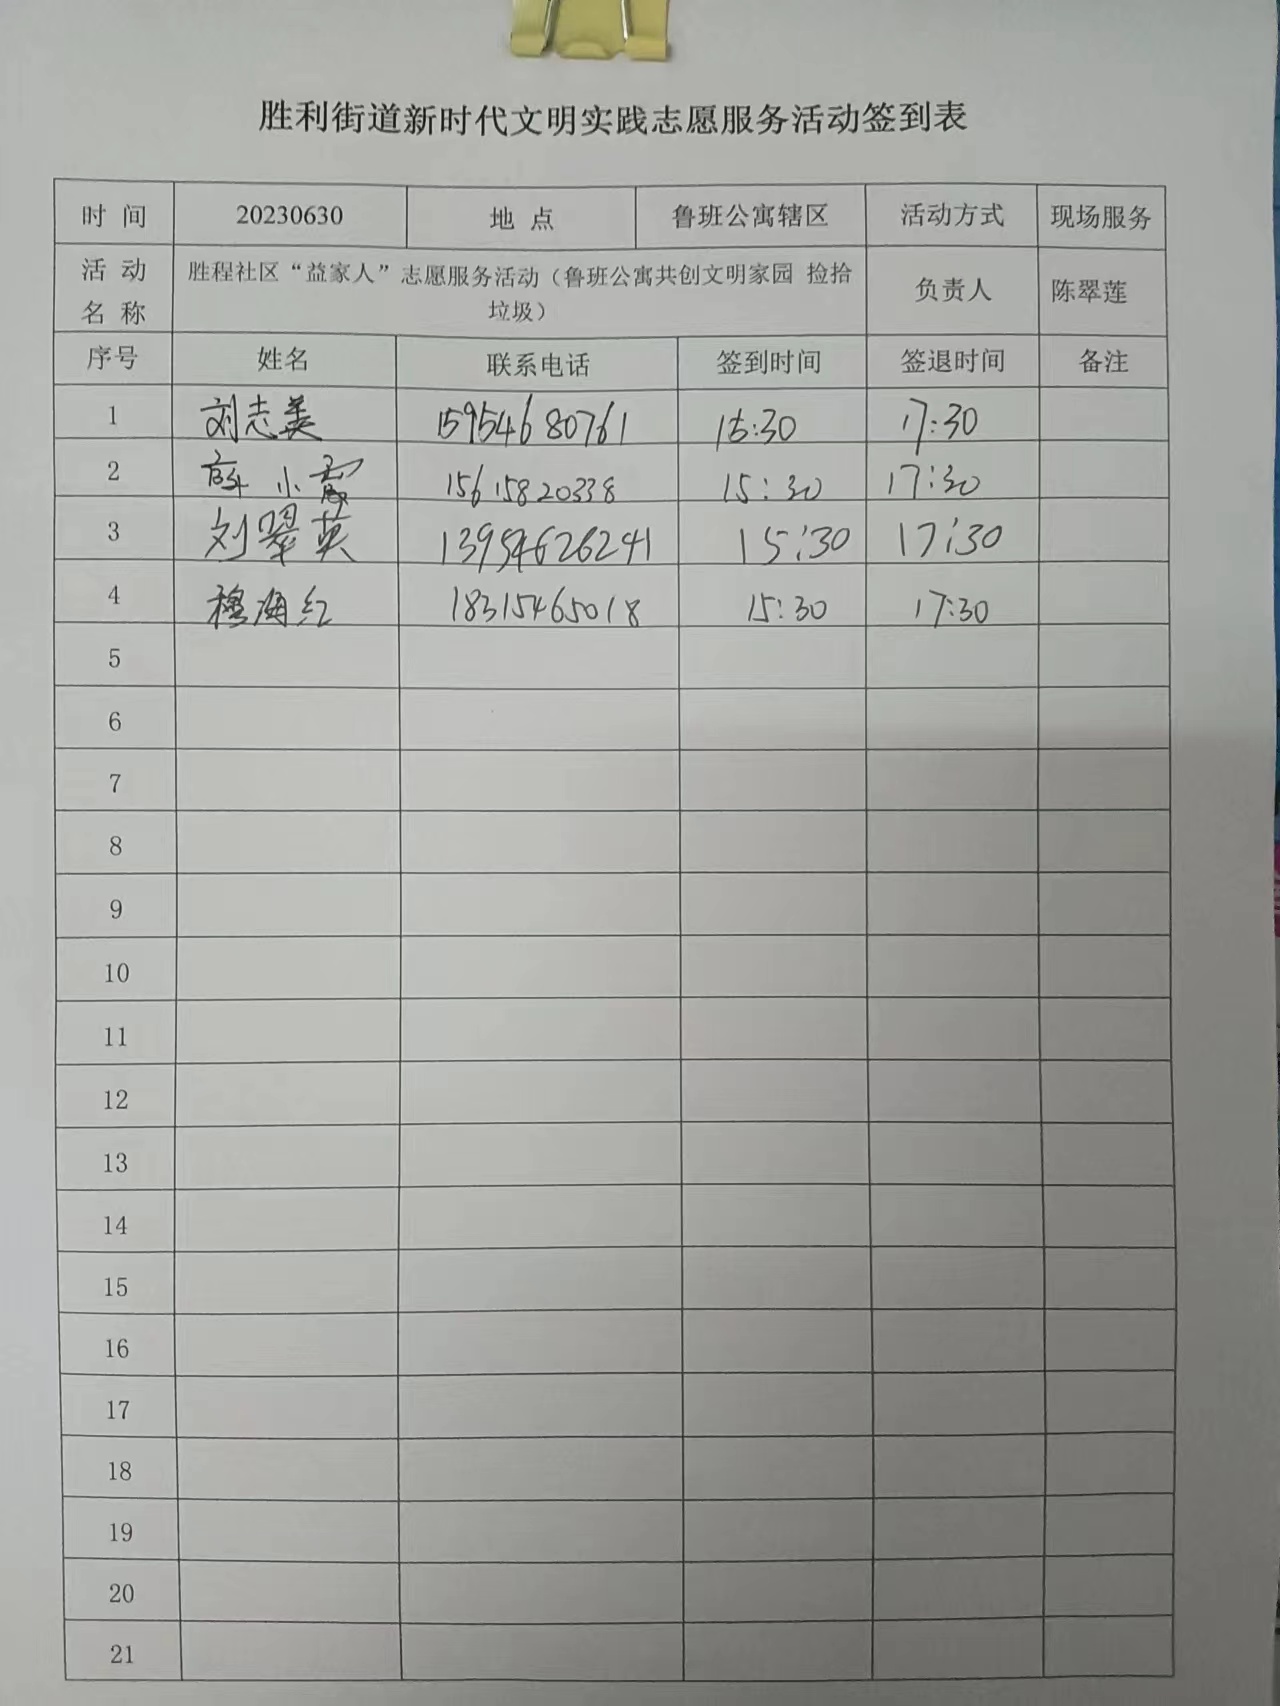 胜利街道新时代文明实践志愿服务活动签到表
时 间 20230630 地 点 鲁班公寓辖区 活动方式 现场服务
活 动 名 称 胜程社区“益家人”志愿服务活动（鲁班公寓共创文明家园 捡拾垃圾） 负责人 陈翠莲
序号 姓名 联系电话 签到时间 签退时间 备注
1 刘志美 15954680761 15:30 17:30
2 薛小霞 15615820338 15:30 17:30
3 刘翠英 13954626241 15:30 17:30
4 穆海红 18315465018 15:30 17:30
5
6
7
8
9
10
11
12
13
14
15
16
17
18
19
20
21